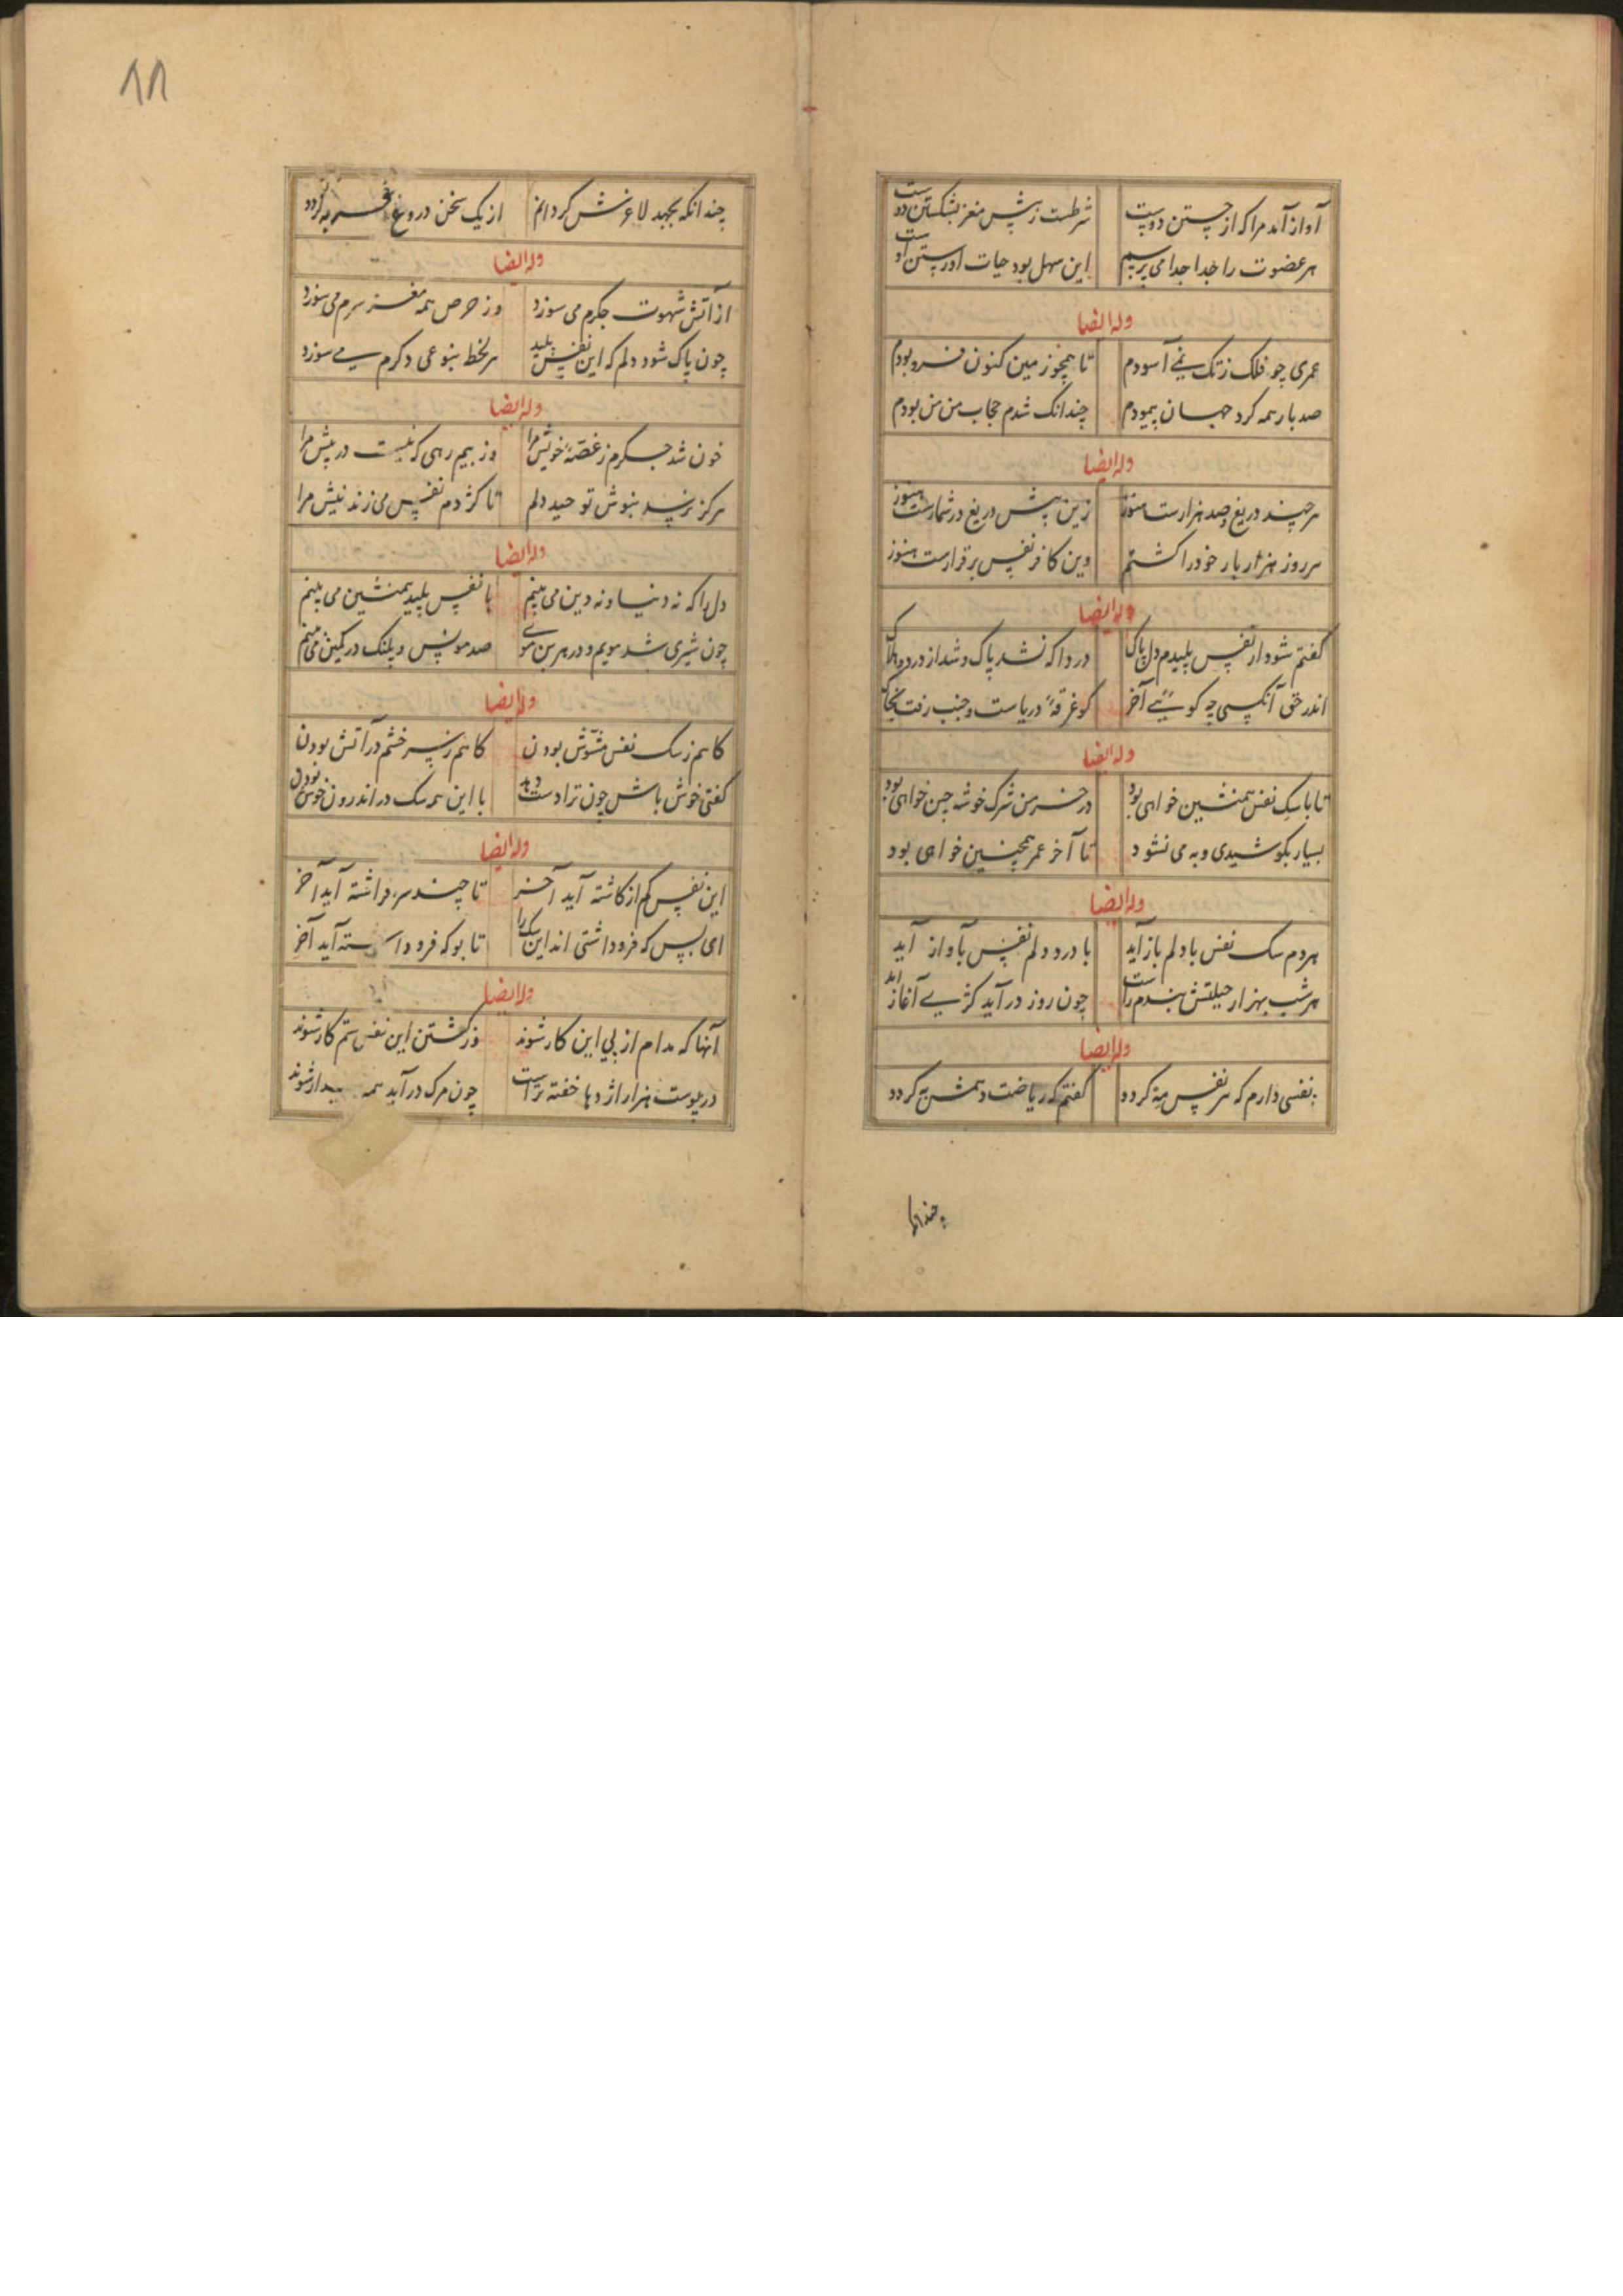 آواز آمد مرا که از جستن دوست شرطست ز پیش مغز بشکستن دوست
هر عضوت را جدا جدا می پرسیم این سهل بود حیات او رستن اوست
وله ایضا
عمری چو فلک ز تک نمی آسودم تا همچو زمین کنون فرو بودم
صد بار همه کرد جهان پیمودم چندانک شدم حجاب من من بودم
وله ایضا
هر چند دریغ صد هزارست هنوز زین بیش دریغ در شمارست هنوز
هر روز هزار بار خود را کشتم وین کافر نفس برقرارست هنوز
وله ایضا
کفتم شود از نفس پلیدم دل پاک دردا که نشد پاک و شد از درد هلاک
اندر حق آنکسی چه کویی آخر کو غرقهٔ دریاست و جنب رفت بخاک
وله ایضا
تا با سک نفس همنشین خواهی بود در خرمن شرک خوشه چین خواهی بود
بسیار بکوشیدی و به می نشود تا آخر عمر همچنین خواهی بود
وله ایضا
هر دم سک نفس با دلم باز آید با درد دلم نفس بآواز آید
هر شب بهزار حیلتش بندم راست چون روز در آید کژیی آغازاید
وله ایضا
نفسی دارم که هر نفس مه کردد کفتم که ریاضت دهمش به کردد
چندانکه
٨٨
چندانکه بجهد لاغرش کردانم از یک سخن دروغ فربه کردد
وله ایضا
از آتش شهوت جکرم می سوزد وز حرص همه مغز سرم می سوزد
چون پاک شود دلم که این نفس پلید هر لحظ بنوعی دکرم می سوزد
وله ایضا
خون شد جکرم ز غصهٔ خویش مرا وز بیم رهی که نیست در پیش مرا
هرکز نرسد بنوش توحید دلم تا کژدم نفس می زند نیش مرا
وله ایضا
دل را که نه دنیا و نه دین می بینم با نفس پلید همنشین می بینم
چون شیری شد مویم و در هر بن موی صد موش و پلنک در کمین می بینم
وله ایضا
کاهم ز سک نفس مشوش بودن کاهم ز سر خشم در آتش بودن
کفتی خوش باش چون ترا دست دهد با این همه سک در اندرون خوش بودن
وله ایضا
این نفس کم از کاشته آید آخر تا چند سر فراشته آید آخر
ای بس که فرو داشتی اند این سک را تا بوکه فرو داشته آید آخر
وله ایضا
آنها که مدام از پی این کار شوند وز کشتن این نفس ستم کار شوند
در پوست هزار اژدها خفته تراست چون مرک در آید همه بیدار شوند